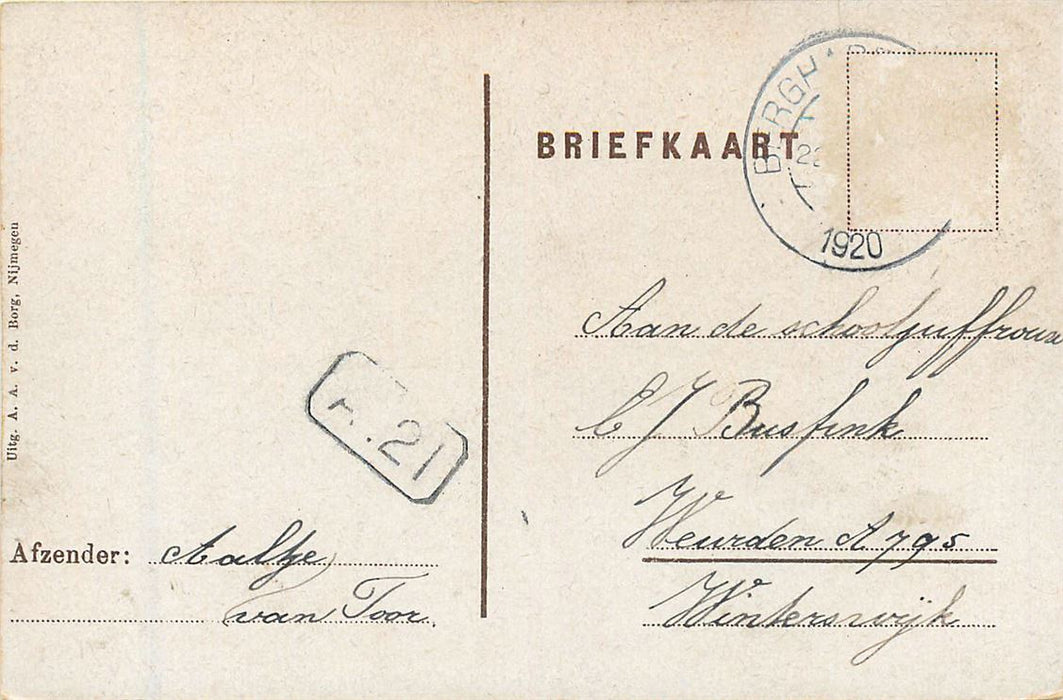 BRIEFKAART
1920
Aan de schooljuffrouw
C J Busfink
Weurden A 795
Winterswijk
.21
Afzender: Aaltje
van Toor.
Uitg. A. A. v. d. Borg, Nijmegen